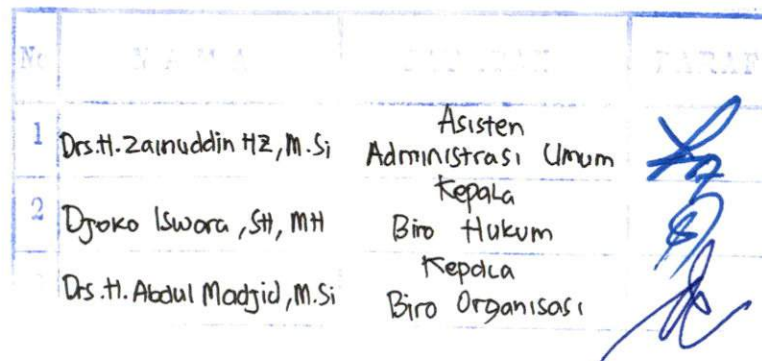 No NAMA JABATAN PARAF
1 Drs.H. Zainuddin HZ, M.Si Asisten
Administrasi Umum
2 Djoko Iswora, SH, MH Kepala
Biro Hukum
Drs.H. Abdul Madjid, M.Si Kepala
Biro Organisasi